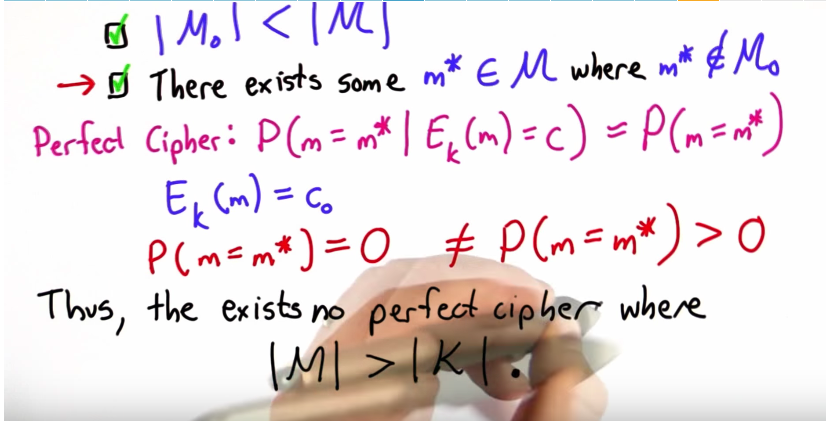 ☑ |M₀| < |M|
→ ☑ There exists some m* ∈ M where m* ∉ M₀
Perfect Cipher: P(m = m* | E_k(m) = c) = P(m = m*)
E_k(m) = c₀
P(m = m*) = 0 ≠ P(m = m*) > 0
Thus, the exists no perfect cipher where
|M| > |K|.